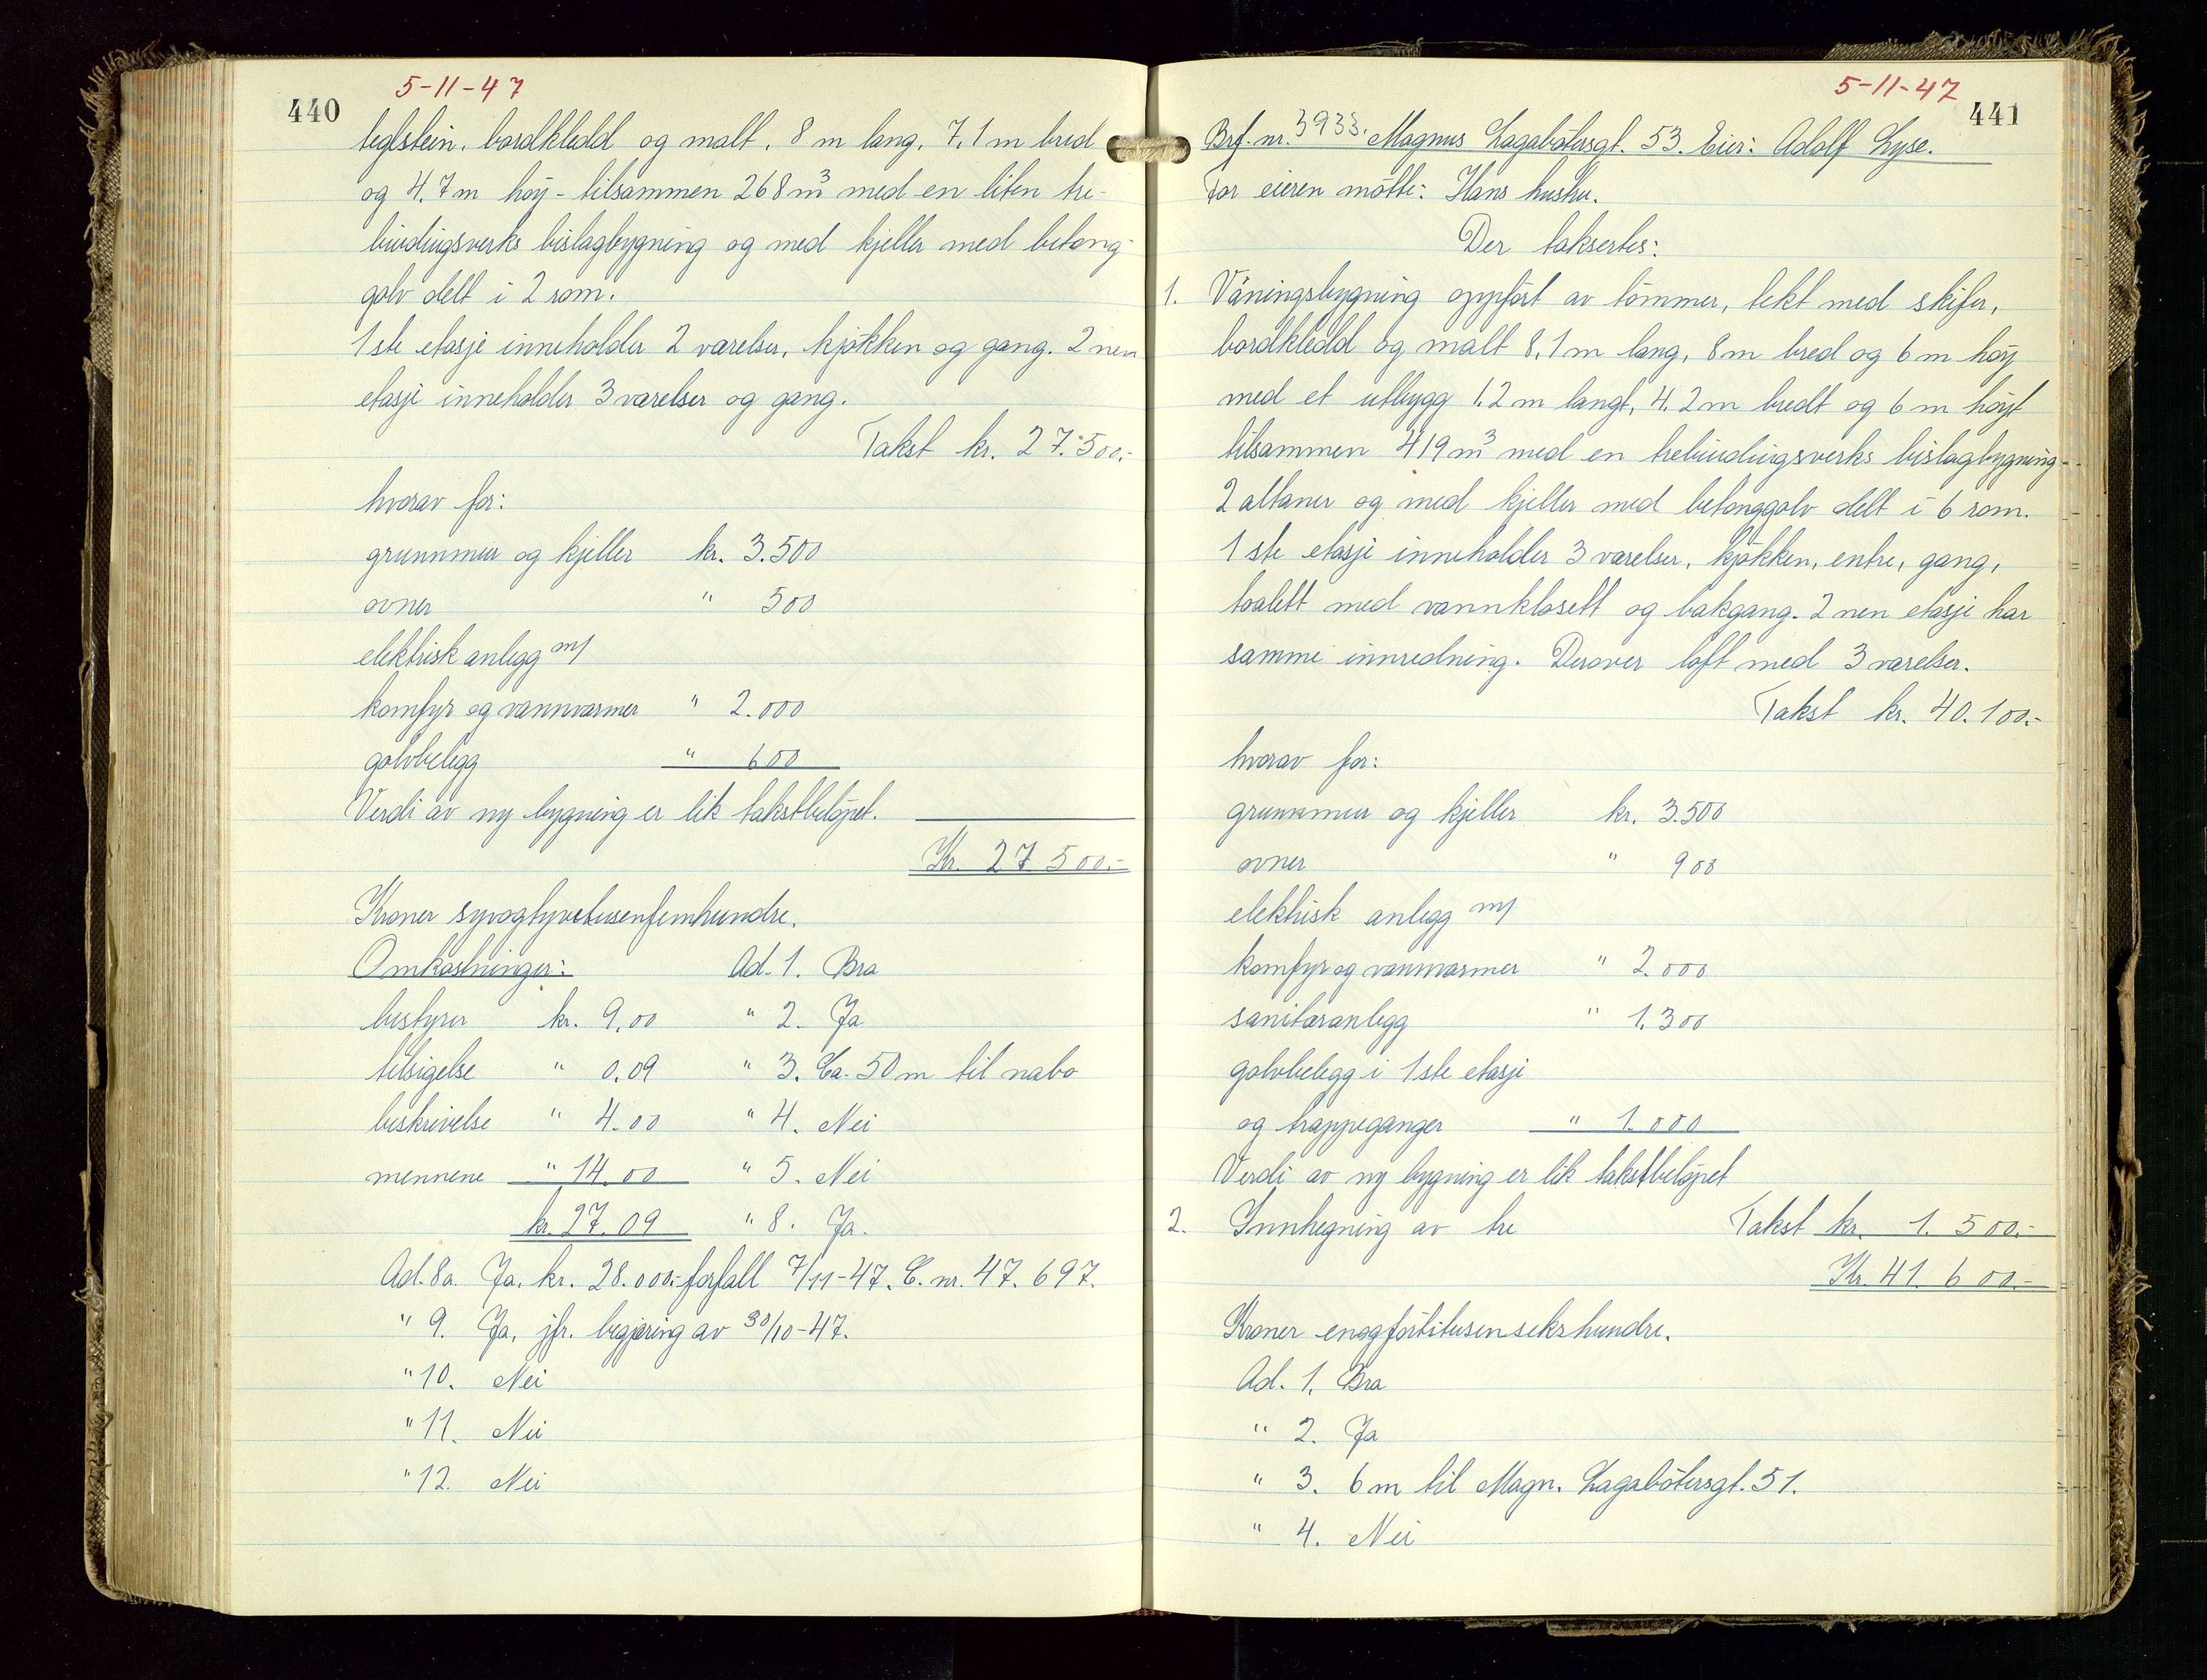 440
5-11-47
teglstein, bordkledd og malt, 8 m lang, 7,1 m bred
og 4.7 m høy - tilsammen 268 m³ med en liten tre-
bindingsverks bislagbygning og med kjeller med betong-
golv delt i 2 rom.
1ste etasje inneholder 2 værelser, kjøkken og gang. 2nen
etasje inneholder 3 værelser og gang.
Takst kr. 27.500.-
hvorav for:
grunnmur og kjeller kr. 3.500
ovner " 500
elektrisk anlegg m/
komfyr og vannvarmer " 2.000
golvbelegg " 600
Verdi av ny bygning er lik takstbeløpet.
Kr. 27 500.-
Kroner syvogtyvetusenfemhundre.
Omkostninger: Ad. 1. Bra
bestyrer kr. 9,00 " 2. Ja
tilsigelse " 0.09 " 3. Ca. 50 m til nabo
beskrivelse " 4.00 " 4. Nei
mennene " 14.00 " 5. Nei
kr. 27.09 " 8. Ja.
Ad. 8a. Ja, kr. 28.000.- forfall 7/11-47. C. nr. 47.697.
" 9. Ja, jfr. begjæring av 30/10-47.
" 10. Nei
" 11. Nei
" 12. Nei
5-11-47
441
Brf. nr. 3933. Magnus Lagabøtersgt. 53. Eier: Adolf Lyse.
For eieren møtte: Hans hustru.
Der taksertes:
1. Våningsbygning oppført av tømmer, tekt med skifer,
bordkledd og malt 8,1 m lang, 8 m bred og 6 m høy
med et utbygg 1,2 m langt, 4,2 m bredt og 6 m høyt
tilsammen 419 m³ med en trebindingsverks bislagbygning-
2 altaner og med kjeller med betonggolv delt i 6 rom.
1ste etasje inneholder 3 værelser, kjøkken, entre, gang,
toalett med vannklosett og bakgang. 2nen etasje har
samme innredning. Derover loft med 3 værelser.
Takst kr. 40.100.-
hvorav for:
grunnmur og kjeller kr. 3.500
ovner " 900
elektrisk anlegg m/
komfyr og vannvarmer " 2.000
sanitæranlegg " 1.300
golvbelegg i 1ste etasje
og trappeganger " 1.000
Verdi av ny bygning er lik takstbeløpet
2. Innhegning av tre Takst kr. 1.500.-
Kr. 41 600.-
Kroner enogførtitusensekshundre.
Ad. 1. Bra
" 2. Ja
" 3. 6 m til Magn. Lagabøtersgt. 51.
" 4. Nei